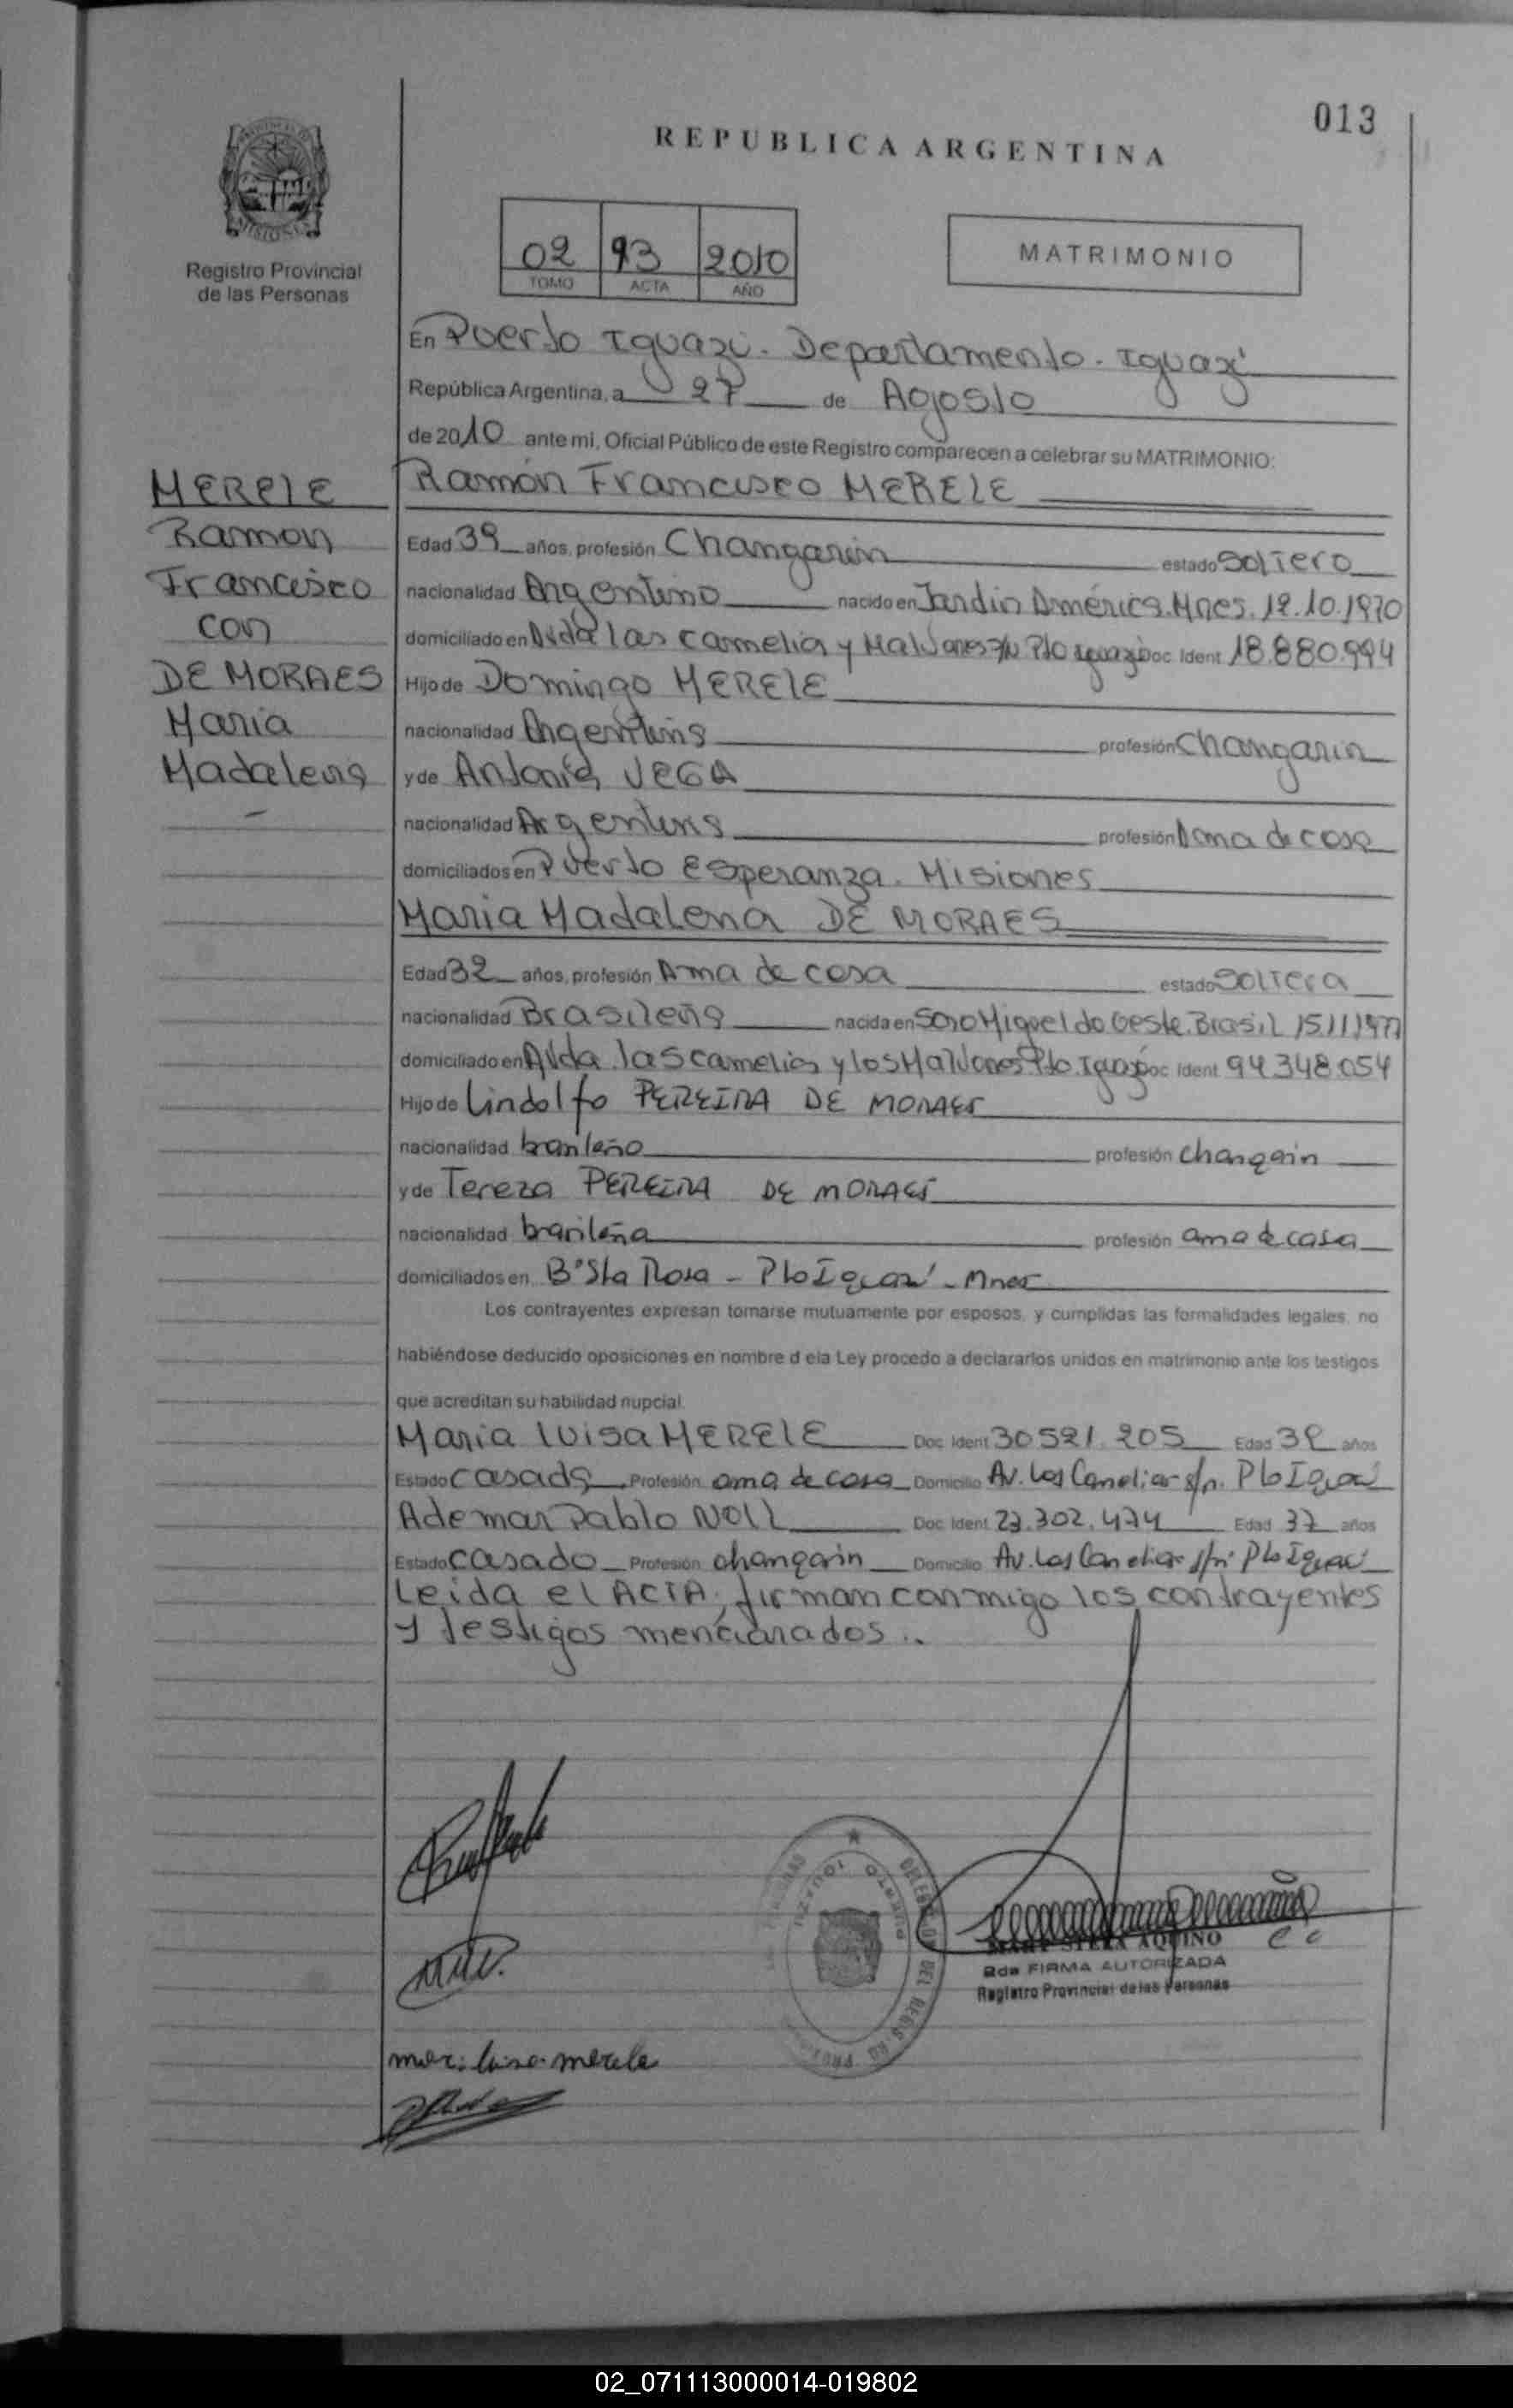 013
REPUBLICA ARGENTINA
02 93 2010
TOMO ACTA AÑO
MATRIMONIO
Registro Provincial
de las Personas
MERELE
Ramon
Francisco
con
DE MORAES
Maria
Madalena
En Puerto Iguazú. Departamento. Iguazú
República Argentina, a 27 de Agosto
de 2010 ante mi, Oficial Público de este Registro comparecen a celebrar su MATRIMONIO:
Ramón Francisco MERELE
Edad 39 años, profesión Changarin estado Soltero
nacionalidad Argentino nacido en Jardin América. Mnes. 12.10.1970
domiciliado en Avda las camelias y Malvones s/N Pto Iguazú Doc Ident 18.880.994
Hijo de Domingo MERELE
nacionalidad Argentina profesión Changarin
y de Antonia VEGA
nacionalidad Argentina profesión Ama de casa
domiciliados en Puerto Esperanza. Misiones
Maria Madalena DE MORAES
Edad 32 años, profesión Ama de casa estado Soltera
nacionalidad Brasileña nacida en Sao Miguel do Oeste. Brasil 15/11/1977
domiciliado en Avda. las camelias y los Malvones Pto. Iguazú Doc Ident 94348.054
Hijo de Lindolfo PEREIRA DE MORAES
nacionalidad brasileño profesión changarin
y de Tereza PEREIRA DE MORAES
nacionalidad brasileña profesión ama de casa
domiciliados en B° Sta Rosa - Pto Iguazú - Mnes
Los contrayentes expresan tomarse mutuamente por esposos, y cumplidas las formalidades legales, no
habiéndose deducido oposiciones en nombre d ela Ley procedo a declararlos unidos en matrimonio ante los testigos
que acreditan su habilidad nupcial.
Maria Luisa MERELE Doc Ident 30521.205 Edad 32 años
Estado casada Profesión ama de casa Domicilio Av. Las Camelias s/n. Pto Iguazú
Ademar Pablo NOLL Doc Ident 23.302.474 Edad 37 años
Estado casado Profesión changarin Domicilio Av. Las Camelias s/n Pto Iguazú
Leida el ACTA, firman conmigo los contrayentes
y testigos mencionados..
STELLA AQUINO
2da FIRMA AUTORIZADA
Registro Provincial de las Personas
merele
02_071113000014-019802